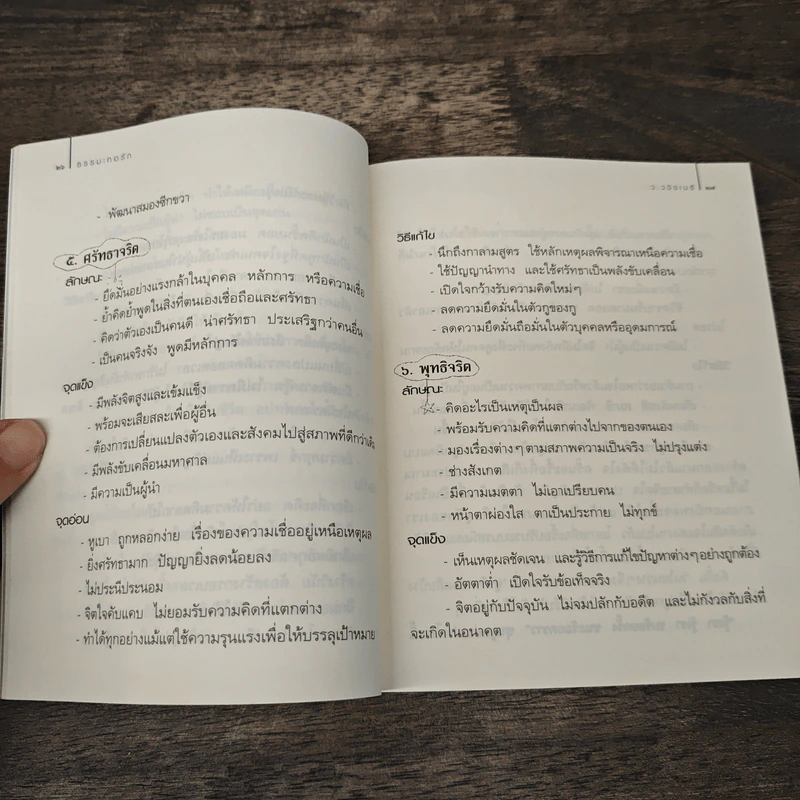 ๒๖ ธรรมะทอรัก
- พัฒนาสมองซีกขวา
๕. ศรัทธาจริต
ลักษณะ
- ยึดมั่นอย่างแรงกล้าในบุคคล หลักการ หรือความเชื่อ
- ย้ำคิดย้ำพูดในสิ่งที่ตนเองเชื่อถือและศรัทธา
- คิดว่าตัวเองเป็นคนดี น่าศรัทธา ประเสริฐกว่าคนอื่น
- เป็นคนจริงจัง พูดมีหลักการ
จุดแข็ง
- มีพลังจิตสูงและเข้มแข็ง
- พร้อมจะเสียสละเพื่อผู้อื่น
- ต้องการเปลี่ยนแปลงตัวเองและสังคมไปสู่สภาพที่ดีกว่าเดิม
- มีพลังขับเคลื่อนมหาศาล
- มีความเป็นผู้นำ
จุดอ่อน
- หูเบา ถูกหลอกง่าย เรื่องของความเชื่ออยู่เหนือเหตุผล
- ยิ่งศรัทธามาก ปัญญายิ่งลดน้อยลง
- ไม่ประนีประนอม
- จิตใจคับแคบ ไม่ยอมรับความคิดที่แตกต่าง
- ทำได้ทุกอย่างแม้แต่ใช้ความรุนแรงเพื่อให้บรรลุเป้าหมาย
ว.วชิรเมธี ๒๗
วิธีแก้ไข
- นึกถึงกาลามสูตร ใช้หลักเหตุผลพิจารณาเหนือความเชื่อ
- ใช้ปัญญานำทาง และใช้ศรัทธาเป็นพลังขับเคลื่อน
- เปิดใจกว้างรับความคิดใหม่ๆ
- ลดความยึดมั่นในตัวกูของกู
- ลดความยึดมั่นถือมั่นในตัวบุคคลหรืออุดมการณ์
๖. พุทธิจริต
ลักษณะ
- คิดอะไรเป็นเหตุเป็นผล
- พร้อมรับความคิดที่แตกต่างไปจากของตนเอง
- มองเรื่องต่างๆ ตามสภาพความเป็นจริง ไม่ปรุงแต่ง
- ช่างสังเกต
- มีความเมตตา ไม่เอาเปรียบคน
- หน้าตาผ่องใส ตาเป็นประกาย ไม่ทุกข์
จุดแข็ง
- เห็นเหตุผลชัดเจน และรู้วิธีการแก้ไขปัญหาต่างๆอย่างถูกต้อง
- อัตตาต่ำ เปิดใจรับข้อเท็จจริง
- จิตอยู่กับปัจจุบัน ไม่จมปลักกับอดีต และไม่กังวลกับสิ่งที่
จะเกิดในอนาคต